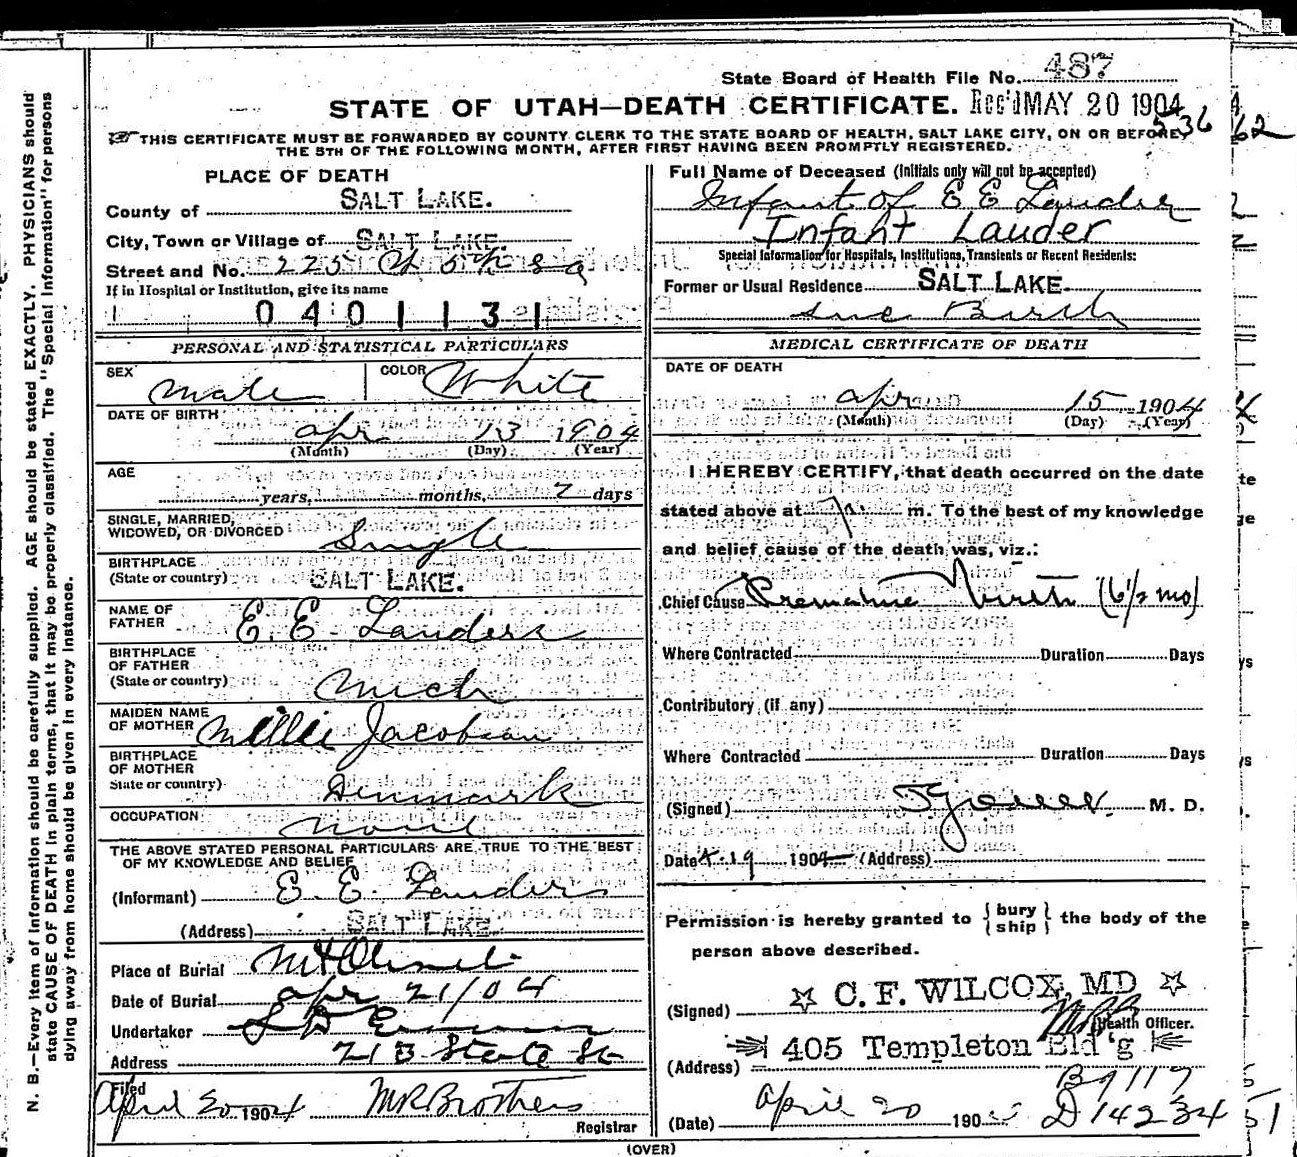 State Board of Health File No. 487
STATE OF UTAH—DEATH CERTIFICATE. Rec'd MAY 20 1904
THIS CERTIFICATE MUST BE FORWARDED BY COUNTY CLERK TO THE STATE BOARD OF HEALTH, SALT LAKE CITY, ON OR BEFORE
THE 5TH OF THE FOLLOWING MONTH, AFTER FIRST HAVING BEEN PROMPTLY REGISTERED.
536 62
N. B.—Every item of information should be carefully supplied. AGE should be stated EXACTLY. PHYSICIANS should
state CAUSE OF DEATH in plain terms, that it may be properly classified. The "Special Information" for persons
dying away from home should be given in every instance.
PLACE OF DEATH
County of SALT LAKE.
City, Town or Village of SALT LAKE.
Street and No. 225
If in Hospital or Institution, give its name
040113
PERSONAL AND STATISTICAL PARTICULARS
SEX Male COLOR White
DATE OF BIRTH
Apr 13 1904
(Month) (Day) (Year)
AGE
years, months, 2 days
SINGLE, MARRIED,
WIDOWED, OR DIVORCED Single
BIRTHPLACE
(State or country) SALT LAKE.
NAME OF
FATHER E. E. Lauders
BIRTHPLACE
OF FATHER
(State or country) Mich
MAIDEN NAME
OF MOTHER Millie Jacobson
BIRTHPLACE
OF MOTHER
State or country) Denmark
OCCUPATION None
THE ABOVE STATED PERSONAL PARTICULARS ARE TRUE TO THE BEST
OF MY KNOWLEDGE AND BELIEF
(Informant) E. E. Lauders
(Address) SALT LAKE
Place of Burial Mt Olivet
Date of Burial Apr 21/04
Undertaker
Address 213 State St
Filed
April 20 1904 M R Brothers
Registrar
Full Name of Deceased (Initials only will not be accepted)
Infant of E E Lauder
Infant Lauder
Special Information for Hospitals, Institutions, Transients or Recent Residents:
Former or Usual Residence SALT LAKE.
Birth
MEDICAL CERTIFICATE OF DEATH
DATE OF DEATH
Apr 15 1904
(Month) (Day) (Year)
I HEREBY CERTIFY, that death occurred on the date
stated above at m. To the best of my knowledge
and belief cause of the death was, viz.:
Chief Cause Premature birth (6 1/2 mo)
Where Contracted Duration Days
Contributory (if any)
Where Contracted Duration Days
(Signed) M. D.
Date 4-19 1904 (Address)
Permission is hereby granted to { bury
ship } the body of the
person above described.
(Signed) ☆ C. F. WILCOX, MD ☆
MRB
Health Officer.
(Address) 405 Templeton Bld'g
B9117
(Date) April 20 190 D 14234 51
(OVER)